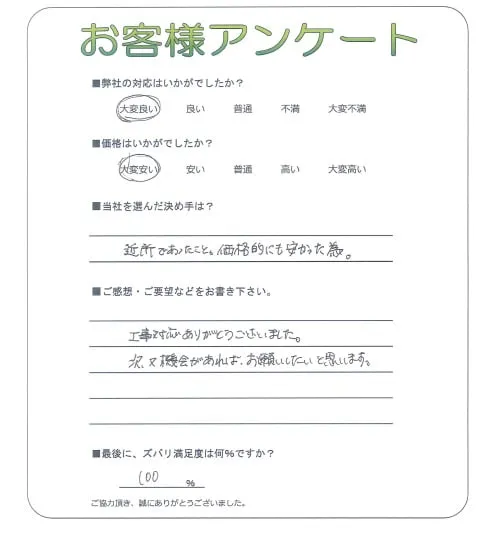 お客様アンケート
■弊社の対応はいかがでしたか？
大変良い 良い 普通 不満 大変不満
■価格はいかがでしたか？
大変安い 安い 普通 高い 大変高い
■当社を選んだ決め手は？
近所であったこと。価格的にも安かった為。
■ご感想・ご要望などをお書き下さい。
工事対応ありがとうございました。
次、又機会があれば、お願いしたいと思います。
■最後に、ズバリ満足度は何％ですか？
100 %
ご協力頂き、誠にありがとうございました。